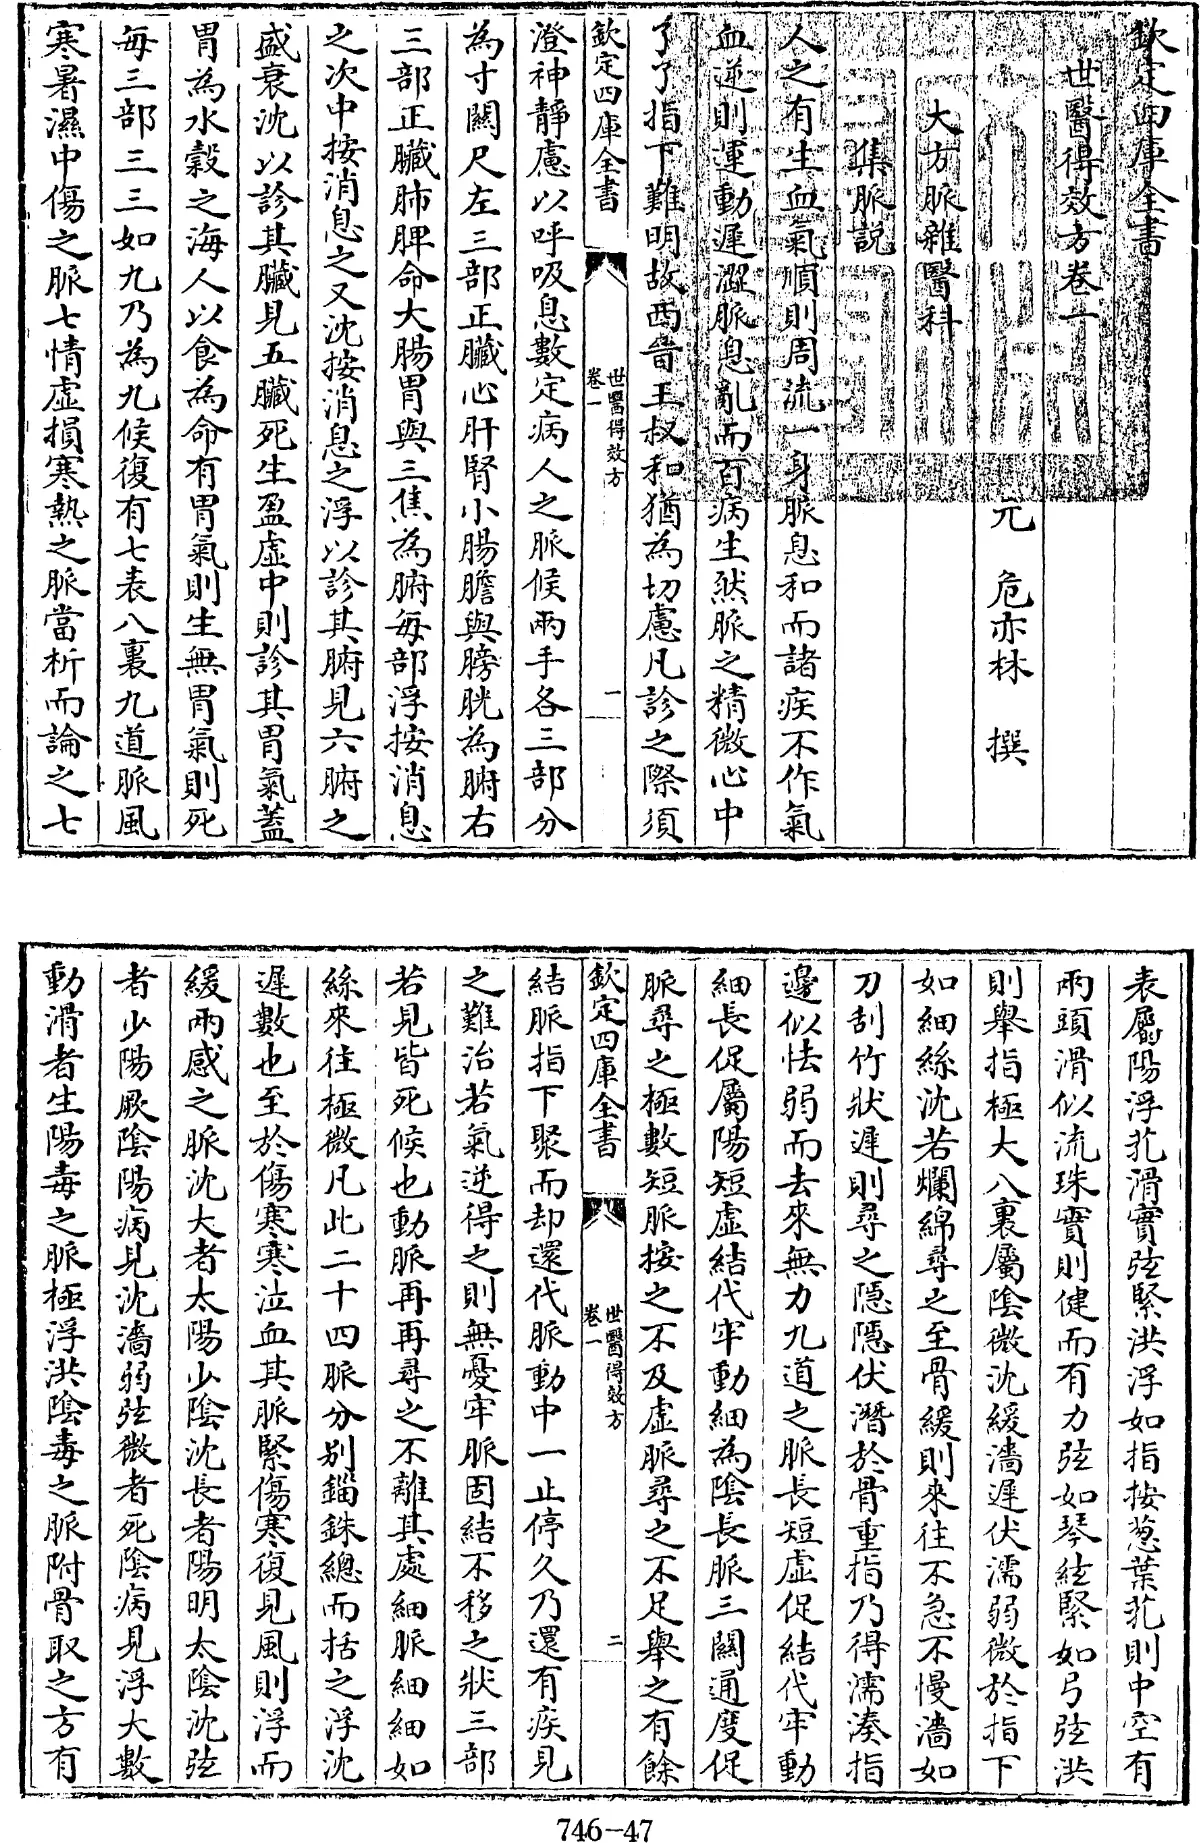 欽定四庫全書
世醫得效方卷一
元 危亦林 撰
大方脈雜醫科
集脈說
人之有生血氣順則周流一身脈息和而諸疾不作氣
血逆則運動遲澀脈息亂而百病生然脈之精微心中
了了指下難明故西晉王叔和猶為切慮凡診之際須
欽定四庫全書
世醫得效方
卷一
一
澄神靜慮以呼吸息數定病人之脈候兩手各三部分
為寸關尺左三部正臟心肝腎小腸膽與膀胱為腑右
三部正臟肺脾命大腸胃與三焦為腑每部浮按消息
之次中按消息之又沈按消息之浮以診其腑見六腑之
盛衰沈以診其臟見五臟死生盈虛中則診其胃氣蓋
胃為水穀之海人以食為命有胃氣則生無胃氣則死
每三部三三如九乃為九候復有七表八裏九道脈風
寒暑濕中傷之脈七情虛損寒熱之脈當析而論之七
表屬陽浮芤滑實弦緊洪浮如指按葱葉芤則中空有
兩頭滑似流珠實則健而有力弦如琴絃緊如弓弦洪
則舉指極大八裏屬陰微沈緩濇遲伏濡弱微於指下
如細絲沈若爛綿尋之至骨緩則來往不急不慢濇如
刀刮竹狀遲則尋之隱隱伏潛於骨重指乃得濡湊指
邊似怯弱而去來無力九道之脈長短虛促結代牢動
細長促屬陽短虛結代牢動細為陰長脈三關通度促
脈尋之極數短脈按之不及虛脈尋之不足舉之有餘
欽定四庫全書
世醫得效方
卷一
二
結脈指下聚而却還代脈動中一止停久乃還有疾見
之難治若氣逆得之則無憂牢脈固結不移之狀三部
若見皆死候也動脈再再尋之不離其處細脈細細如
絲來往極微凡此二十四脈分别錙銖總而括之浮沈
遲數也至於傷寒寒泣血其脈緊傷寒復見風則浮而
緩兩感之脈沈大者太陽少陰沈長者陽明太陰沈弦
者少陽厥陰陽病見沈濇弱弦微者死陰病見浮大數
動滑者生陽毒之脈極浮洪陰毒之脈附骨取之方有
746-47